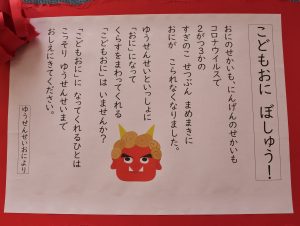 こどもおに ぼしゅう!
おにのせかいも、にんげんのせかいも
コロナウイルスで
2がつ3かの
すぎのこ せつぶん まめまきに
おにが こられなくなりました。
ゆうせんせいといっしょに
「おに」になって
くらすをまわってくれる
「こどもおに」は いませんか?
「こどもおに」に なってくれるひとは
こっそり ゆうせんせいまで
おしえにきてください。
ゆうせんせいおにより